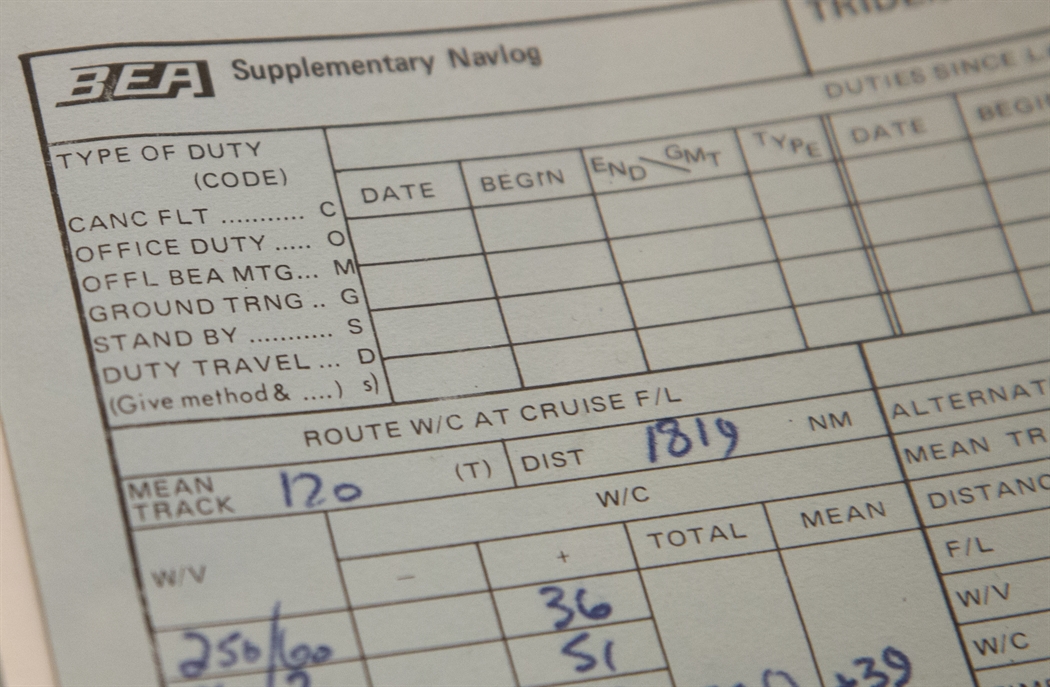 BEA Supplementary Navlog
DUTIES SINCE
TYPE OF DUTY
(CODE)
DATE BEGIN END GMT TYPE DATE
CANC FLT ........... C
OFFICE DUTY ..... O
OFFL BEA MTG... M
GROUND TRNG .. G
STAND BY ........... S
DUTY TRAVEL ... D
(Give method & ....) s)
ROUTE W/C AT CRUISE F/L
MEAN TRACK 120 (T) DIST 1819 NM
MEAN
W/C
DISTANC
W/V
− + TOTAL MEAN
F/L
W/V
36
W/C
250/60 51
+39